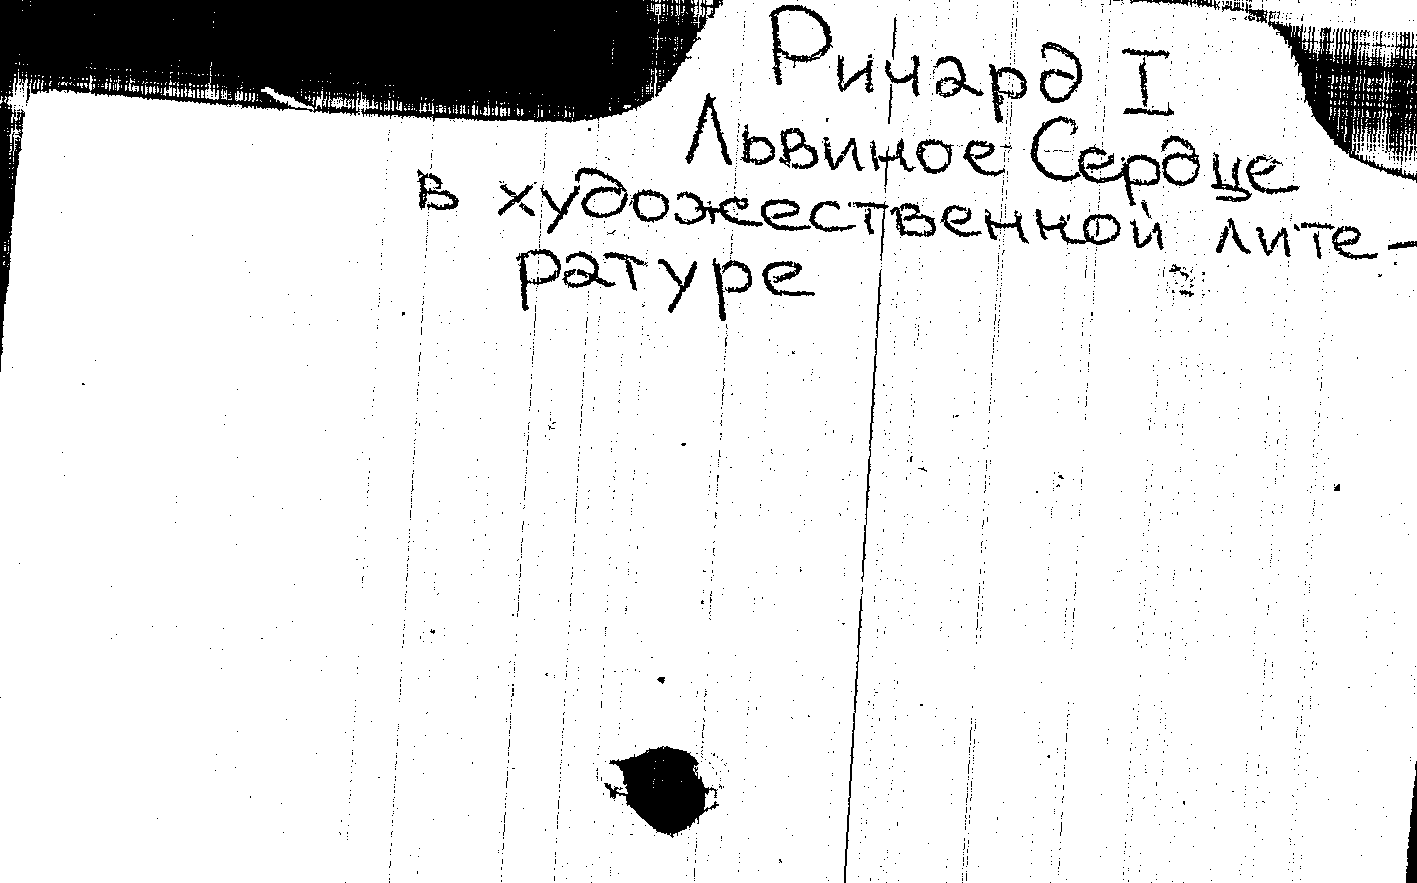 Ричард I
Львиное Сердце
в художественной лите-
ратуре